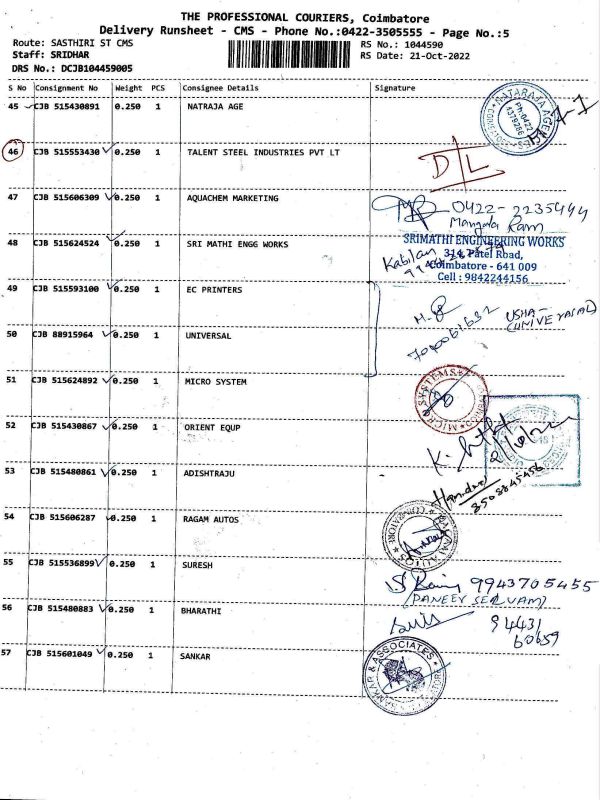 THE PROFESSIONAL COURIERS, Coimbatore
Delivery Runsheet - CMS - Phone No.:0422-3505555 - Page No.:5
Route: SASTHIRI ST CMS
RS No.: 1044590
Staff: SRIDHAR
RS Date: 21-Oct-2022
DRS No.: DCJB104459005
S No Consignment No Weight PCS Consignee Details Signature
45 CJB 515430891 0.250 1 NATRAJA AGE
NATARAJA AGENCIES
Ph:0422
46 CJB 515553430 0.250 1 TALENT STEEL INDUSTRIES PVT LT
D/L
47 CJB 515606309 0.250 1 AQUACHEM MARKETING
0422-2235444
Mangala Ram
48 CJB 515624524 0.250 1 SRI MATHI ENGG WORKS
SRIMATHI ENGINEERING WORKS
314, Patel Road,
Coimbatore - 641 009
Cell : 9842244156
Kabilan
49 CJB 515593100 0.250 1 EC PRINTERS
USHA-
(UNIVERASAL)
50 CJB 88915964 0.250 1 UNIVERSAL
51 CJB 515624892 0.250 1 MICRO SYSTEM
MICRO SYSTEMS
52 CJB 515430867 0.250 1 ORIENT EQUP
53 CJB 515480861 0.250 1 ADISHTRAJU
8508845456
54 CJB 515606287 0.250 1 RAGAM AUTOS
RAGAM AUTOS
55 CJB 515536899 0.250 1 SURESH
9943705455
(PANEER SELVAM)
56 CJB 515480883 0.250 1 BHARATHI
94431
60659
57 CJB 515601049 0.250 1 SANKAR
SANKAR & ASSOCIATES